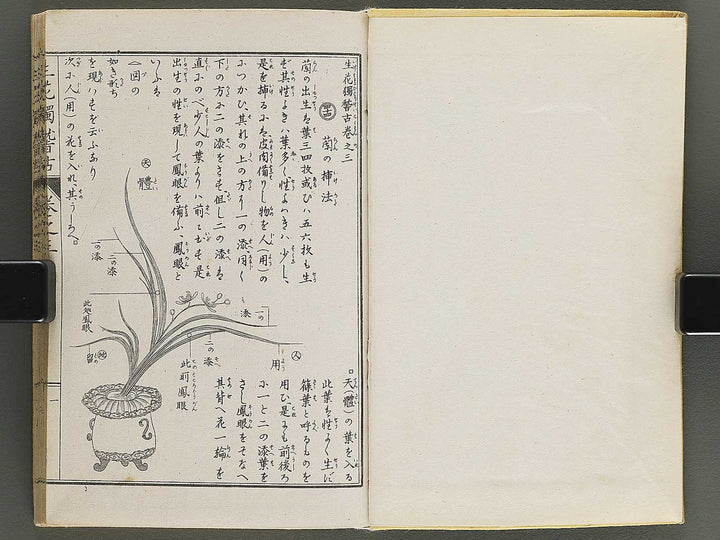 生花獨習古巻之三
蘭の挿法
蘭の出生ハ葉三四枚或ひハ五六枚も生
も其性よきハ葉多く性よハきハ少し、
是を挿るにハ皮肉備りし物を人(用)の
につかひ、其れの上の方より一の添、同く
下の方に二の添をさも但し二の添ハ
直にのべ少人の葉よりハ前に出も是
出生の性を現して鳳眼を備ふ、鳳眼と
いふハ
図の
如き形ち
を現ハもを云ふあり
次に人(用)の花を入れ、其うしろへ
天(體)の葉を入る
此葉ハ性よく生ぢ
篠葉と呼るものを
用ひ是にも前後ろ
に一と二の添葉を
さし鳳眼をそなへ
其背へ花一輪を
天
體
一の添
二の添
此処鳳眼
留
一の添
二の添
此所鳳眼
人
用
巻之三
一